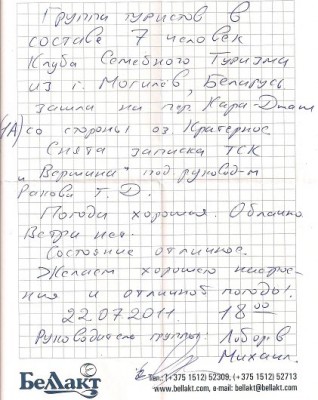 Группа туристов в
составе 7 человек
Клуба Семейного Туризма
из г. Могилёв, Беларусь
зашли на пер. Кара-Джаш
(1А) со стороны оз. Кратерное
Снята записка ТСК
"Вершина" под руковод-м
Ракова Т. Д.
Погода хорошая. Облачно
Ветра нет.
Состояние отличное.
Желаем хорошего настрое-
ния и отличной погоды!
22.07.2011. 18 00
Руководитель группы: Лобов
Михаил.
Беллакт
Тел.: (+375 1512) 52309, (+375 1512) 52713
www.bellakt.com, e-mail: bellakt@bellakt.com